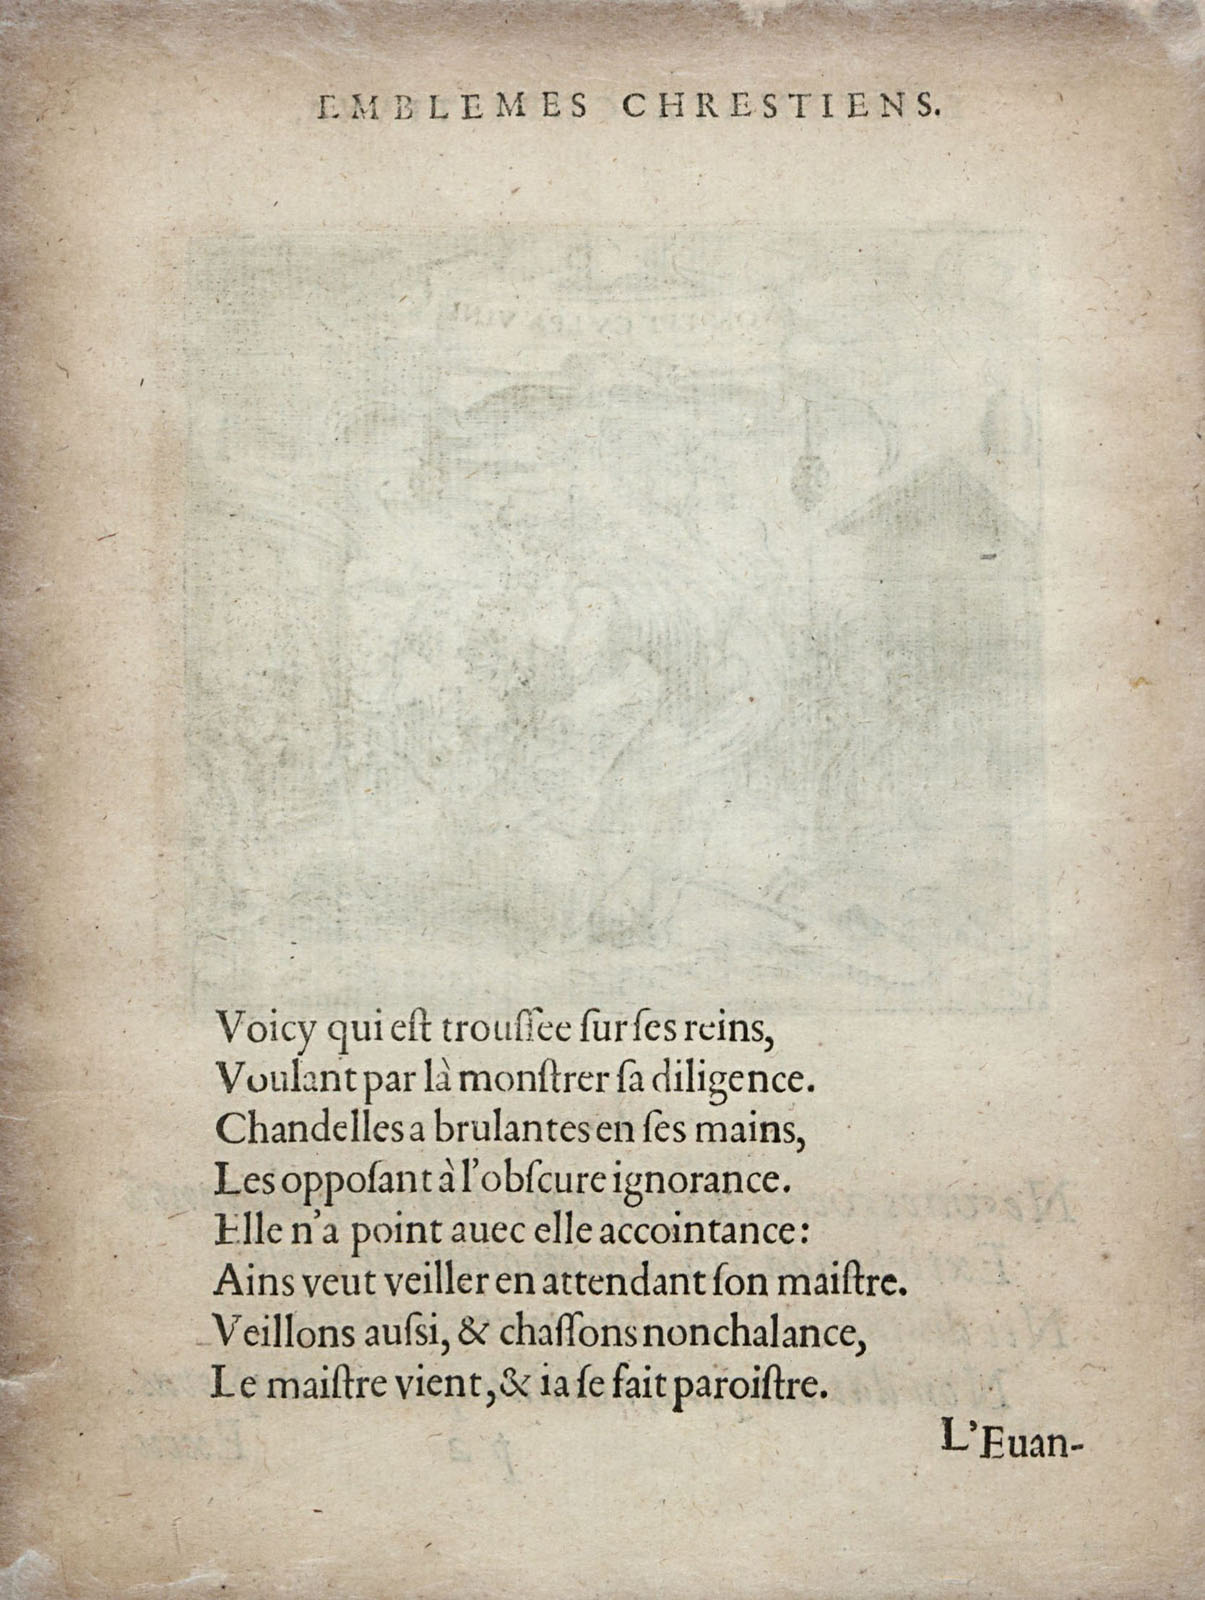 EMBLEMES CHRESTIENS.
Voicy qui eſt trouſſee ſur ſes reins,
Voulant par là monſtrer ſa diligence.
Chandelles a brulantes en ſes mains,
Les oppoſant à l'obſcure ignorance.
Elle n'a point auec elle accointance:
Ains veut veiller en attendant ſon maiſtre.
Veillons auſsi, & chaſſons nonchalance,
Le maiſtre vient, & ia ſe fait paroiſtre.
L'Euan-